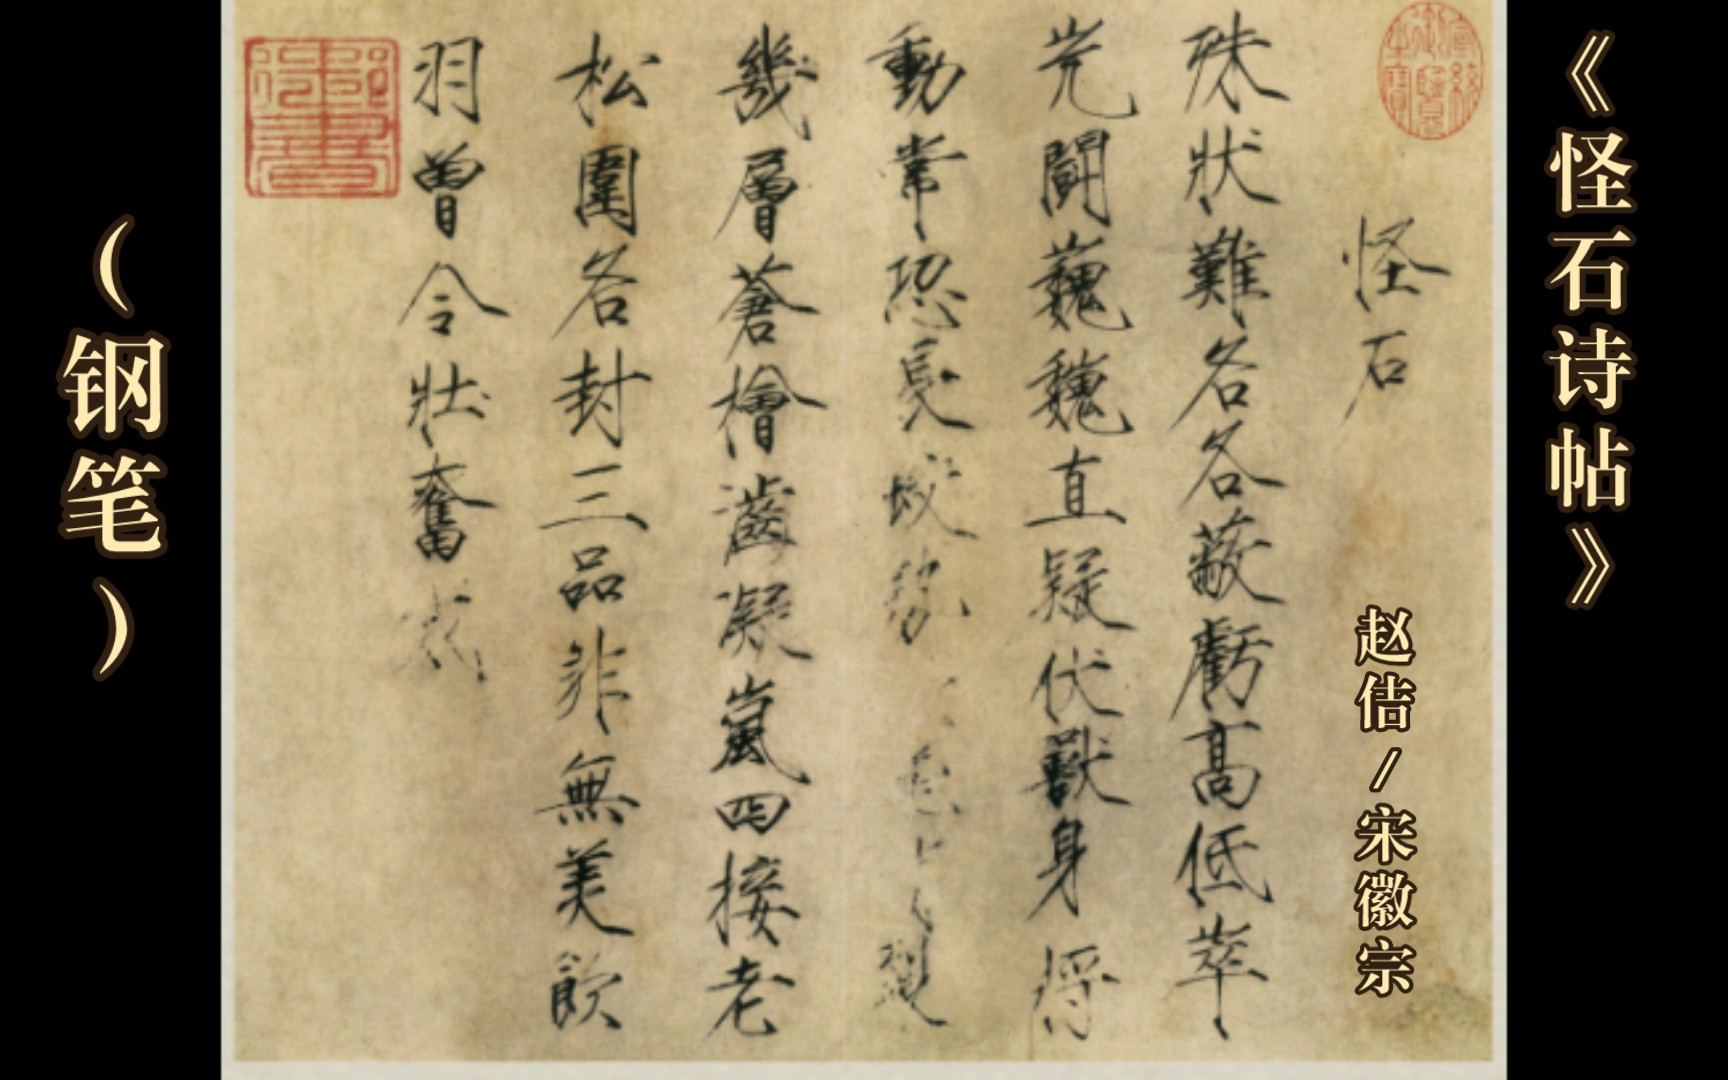 《怪石诗帖》
怪石
赵佶/宋徽宗
殊狀難名各蔽虧高低崒
屼鬪巍巍直疑伏獸身將
動常恐長蛟勢
幾層蒼檜凝嵐四接老
松圍各封三品非無美飲
羽曾令壯奮
御書
（钢笔）